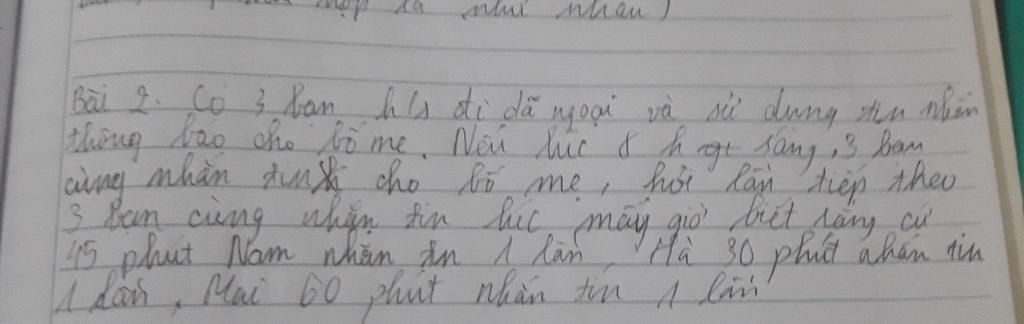 hợp là như nhau)
Bài 2. Có 3 bạn h/s đi dã ngoại và sử dụng tin nhắn
thông báo cho bố mẹ. Nếu lúc 8 h sáng, 3 bạn
cùng nhắn tin cho bố mẹ, hỏi lần tiếp theo
3 bạn cùng nhắn tin lúc mấy giờ biết rằng cứ
45 phút Nam nhắn tin 1 lần, Hà 30 phút nhắn tin
1 lần, Mai 60 phút nhắn tin 1 lần